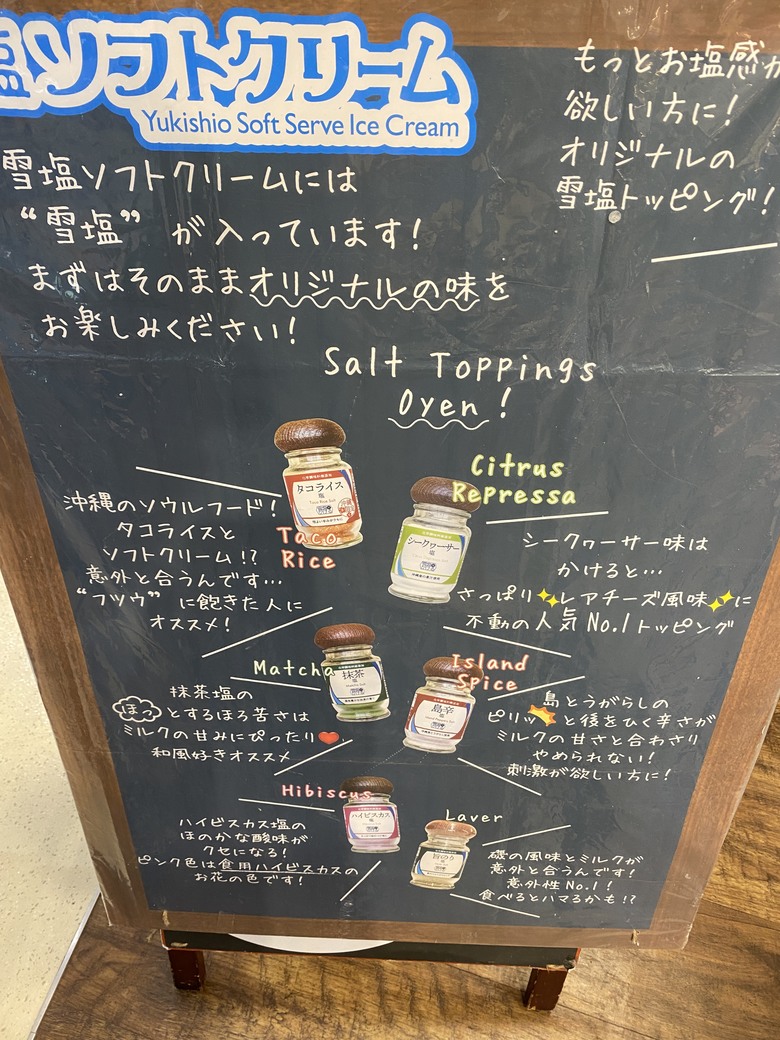 塩ソフトクリーム
Yukishio Soft Serve Ice Cream
もっとお塩感が
欲しい方に!
オリジナルの
雪塩トッピング!
雪塩ソフトクリームには
“雪塩” が入っています!
まずはそのままオリジナルの味を
お楽しみください!
Salt Toppings
Oyen !
タコライス
塩
Taco
Rice
沖縄のソウルフード!
タコライスと
ソフトクリーム!?
意外と合うんです...
“フツウ” に飽きた人に
オススメ!
Citrus
Repressa
シークヮーサー
塩
シークヮーサー味は
かけると...
さっぱり✨レアチーズ風味✨に
不動の人気 No.1トッピング
Matcha
抹茶
塩
抹茶塩の
ほっとするほろ苦さは
ミルクの甘みにぴったり❤
和風好きオススメ
Island
Spice
島辛
塩
島とうがらしの
ピリッと後をひく辛さが
ミルクの甘さと合わさり
やめられない!
刺激が欲しい方に!
Hibiscus
ハイビスカス
塩
ハイビスカス塩の
ほのかな酸味が
クセになる!
ピンク色は食用ハイビスカスの
お花の色です!
Laver
旨のり
塩
磯の風味とミルクが
意外と合うんです!
意外性No.1!
食べるとハマるかも!?